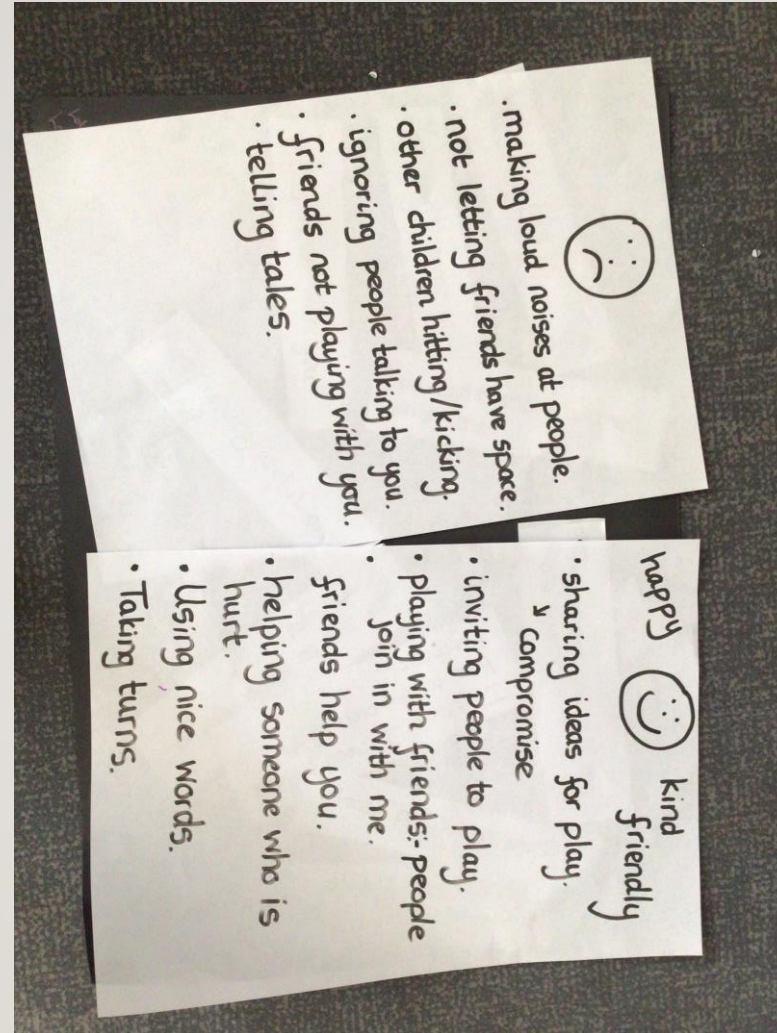 • making loud noises at people.
• not letting friends have space.
• other children hitting/kicking.
• ignoring people talking to you.
• friends not playing with you.
• telling tales.
happy kind
friendly
• sharing ideas for play.
↘ compromise
• inviting people to play.
• playing with friends:- people
join in with me.
• friends help you.
• helping someone who is
hurt.
• Using nice words.
• Taking turns.